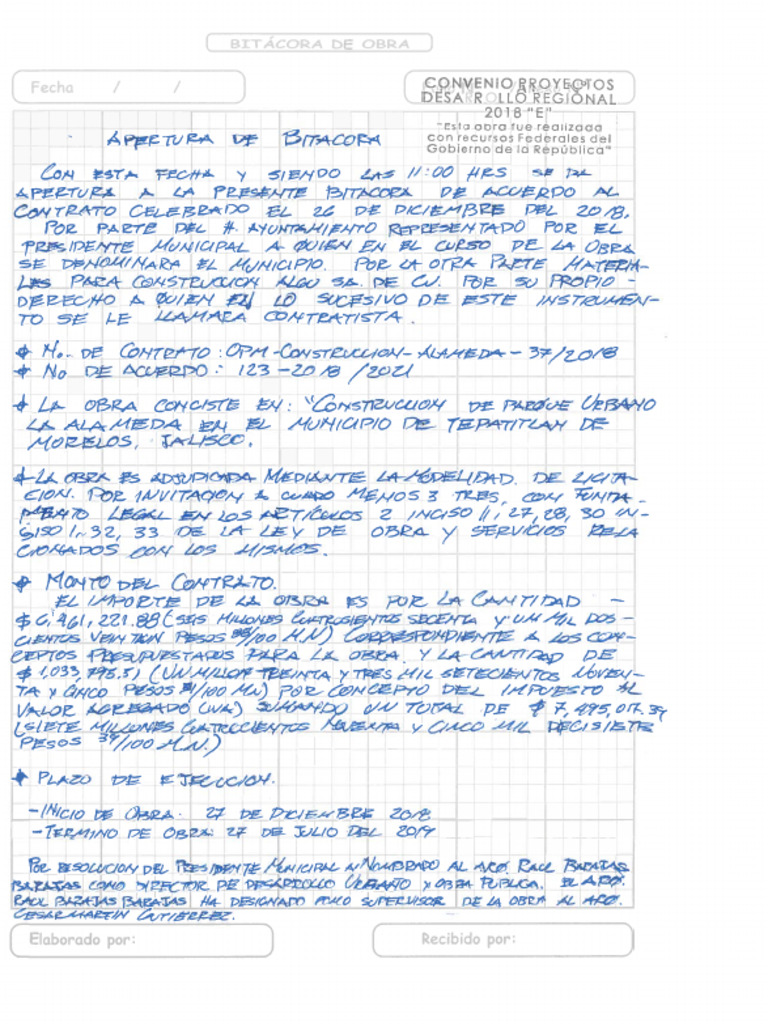 BITÁCORA DE OBRA
Fecha / /
CONVENIO PROYECTOS
DESARROLLO REGIONAL
2018 "E"
"Esta obra fue realizada
con recursos Federales del
Gobierno de la República"
APERTURA DE BITACORA
CON ESTA FECHA Y SIENDO LAS 11:00 HRS SE DA
APERTURA A LA PRESENTE BITACORA DE ACUERDO AL
CONTRATO CELEBRADO EL 26 DE DICIEMBRE DEL 2018.
POR PARTE DEL H. AYUNTAMIENTO REPRESENTADO POR EL
PRESIDENTE MUNICIPAL A QUIEN EN EL CURSO DE LA OBRA
SE DENOMINARA EL MUNICIPIO. POR LA OTRA PARTE MATERIA-
LES PARA CONSTRUCCION ALGU SA. DE CV. POR SU PROPIO -
DERECHO A QUIEN EN LO SUCESIVO DE ESTE INSTRUMEN-
TO SE LE LLAMARA CONTRATISTA.
No. DE CONTRATO: OPM-CONSTRUCCION-ALAMEDA-37/2018
No DE ACUERDO: 123-2018/2021
LA OBRA CONCISTE EN: "CONSTRUCCION DE PARQUE URBANO
LA ALAMEDA EN EL MUNICIPIO DE TEPATITLAN DE
MORELOS, JALISCO.
LA OBRA ES ADJUDICADA MEDIANTE LA MODELIDAD. DE LICITA-
CION. POR INVITACION A CUANDO MENOS 3 TRES, CON FUNDA-
MENTO LEGAL EN LOS ARTÍCULOS 2 INCISO II, 27, 28, 30 IN-
SISO I, 32, 33 DE LA LEY DE OBRA Y SERVICIOS RELA
CIONADOS CON LOS MISMOS.
MONTO DEL CONTRATO.
EL IMPORTE DE LA OBRA ES POR LA CANTIDAD -
$6,461,221.88 (SEIS MILLONES CUATROSIENTOS SECENTA Y UN MIL DOS-
CIENTOS VEINTIUN PESOS 88/100 M.N) CORRESPONDIENTE A LOS CON-
CEPTOS PRESUPUESTADOS PARA LA OBRA. Y LA CANTIDAD DE
$1,033,795.51 (UN MILLON TREINTA Y TRES MIL SETECIENTOS NOVEN-
TA Y CINCO PESOS 51/100 MN) POR CONCEPTO DEL IMPUESTO AL
VALOR AGREGADO (IVA) SUMANDO UN TOTAL DE $7,495,017.39
(SIETE MILLONES CUATROCIENTOS NOVENTA Y CINCO MIL DECISIETE
PESOS 39/100 M.N.)
PLAZO DE EJECUCION.
-INICIO DE OBRA: 27 DE DICIEMBRE 2018
-TERMINO DE OBRA: 27 DE JULIO DEL 2019
POR RESOLUCION DEL PRESIDENTE MUNICIPAL A NOMBRADO AL ARQ. RAUL BARAJAS
BARAJAS COMO DIRECTOR DE DESARROLLO URBANO Y OBRA PUBLICA. EL ARQ.
RAUL BARAJAS BARAJAS HA DESIGNADO COMO SUPERVISOR DE LA OBRA AL ARQ.
CESAR MARTIN GUTIERREZ.
Elaborado por:
Recibido por: